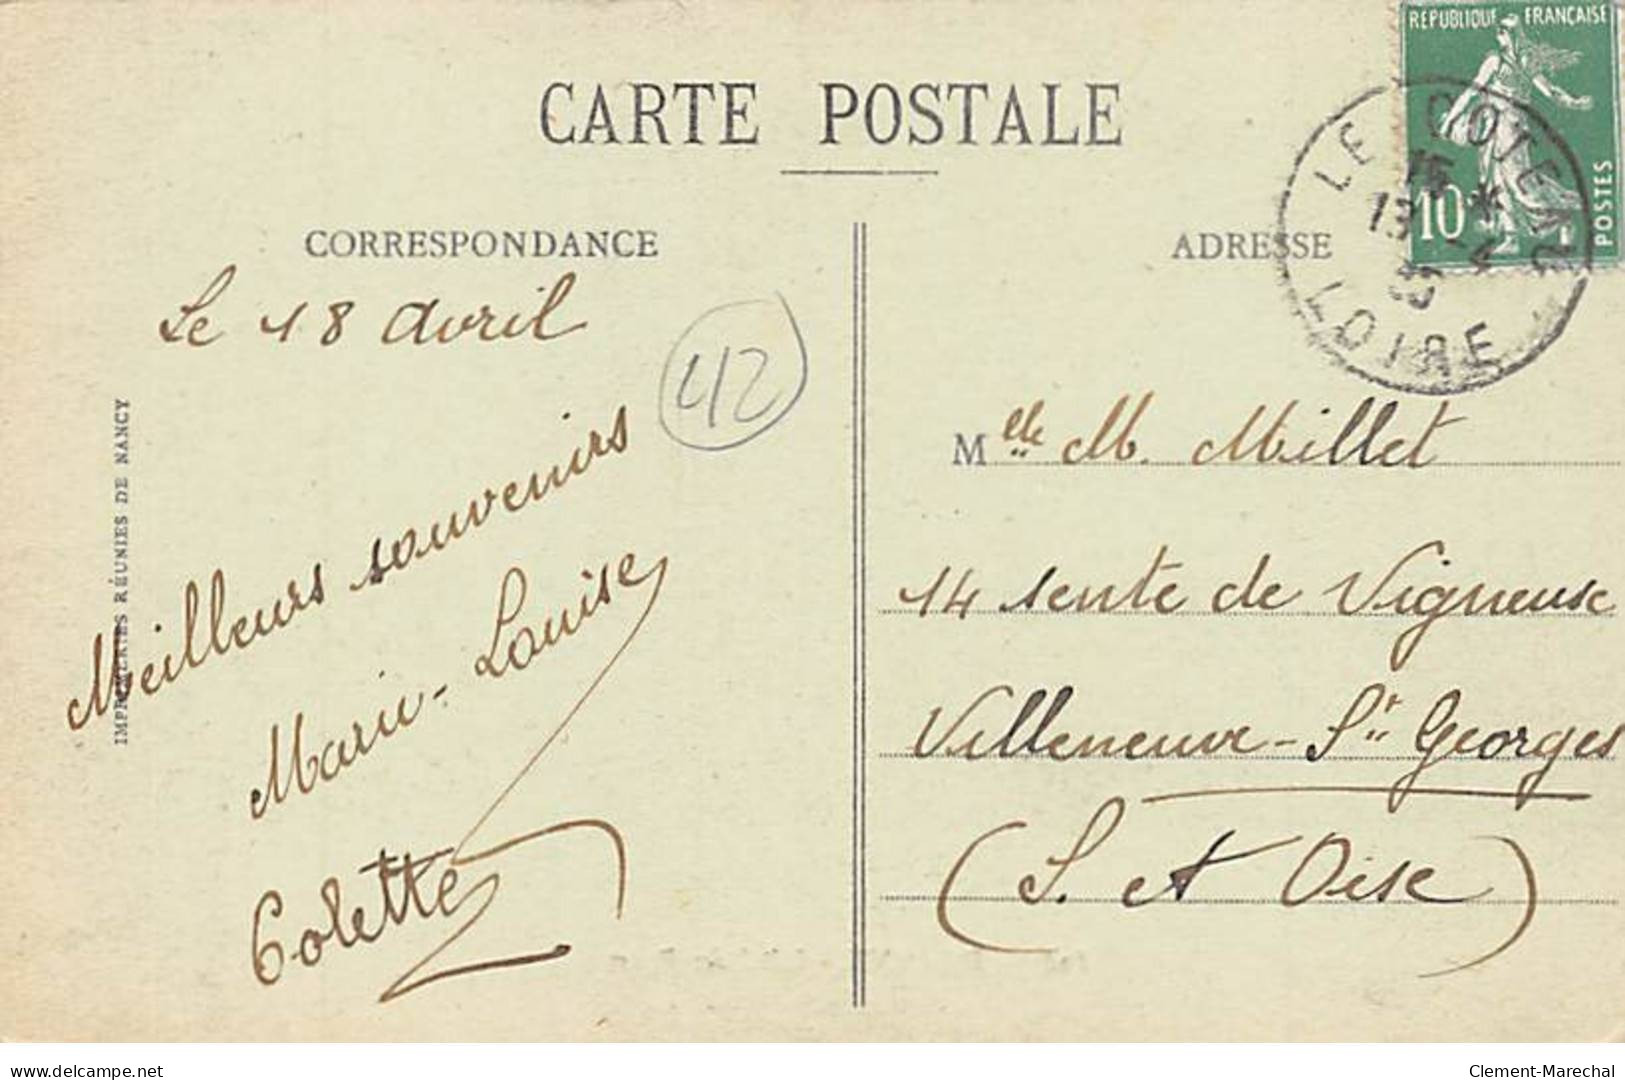 CARTE POSTALE
CORRESPONDANCE
Le 18 avril
42
Meilleurs souvenirs
Marie-Louise
Colette
IMPRIMERIES RÉUNIES DE NANCY
RÉPUBLIQUE FRANÇAISE
10
POSTES
LE COTEAU
15 *
-4
LOIRE
ADRESSE
Melle M. Millet
14 sente de Vigneuse
Villeneuve-St Georges
(S. et Oise)
Clement-Marechal